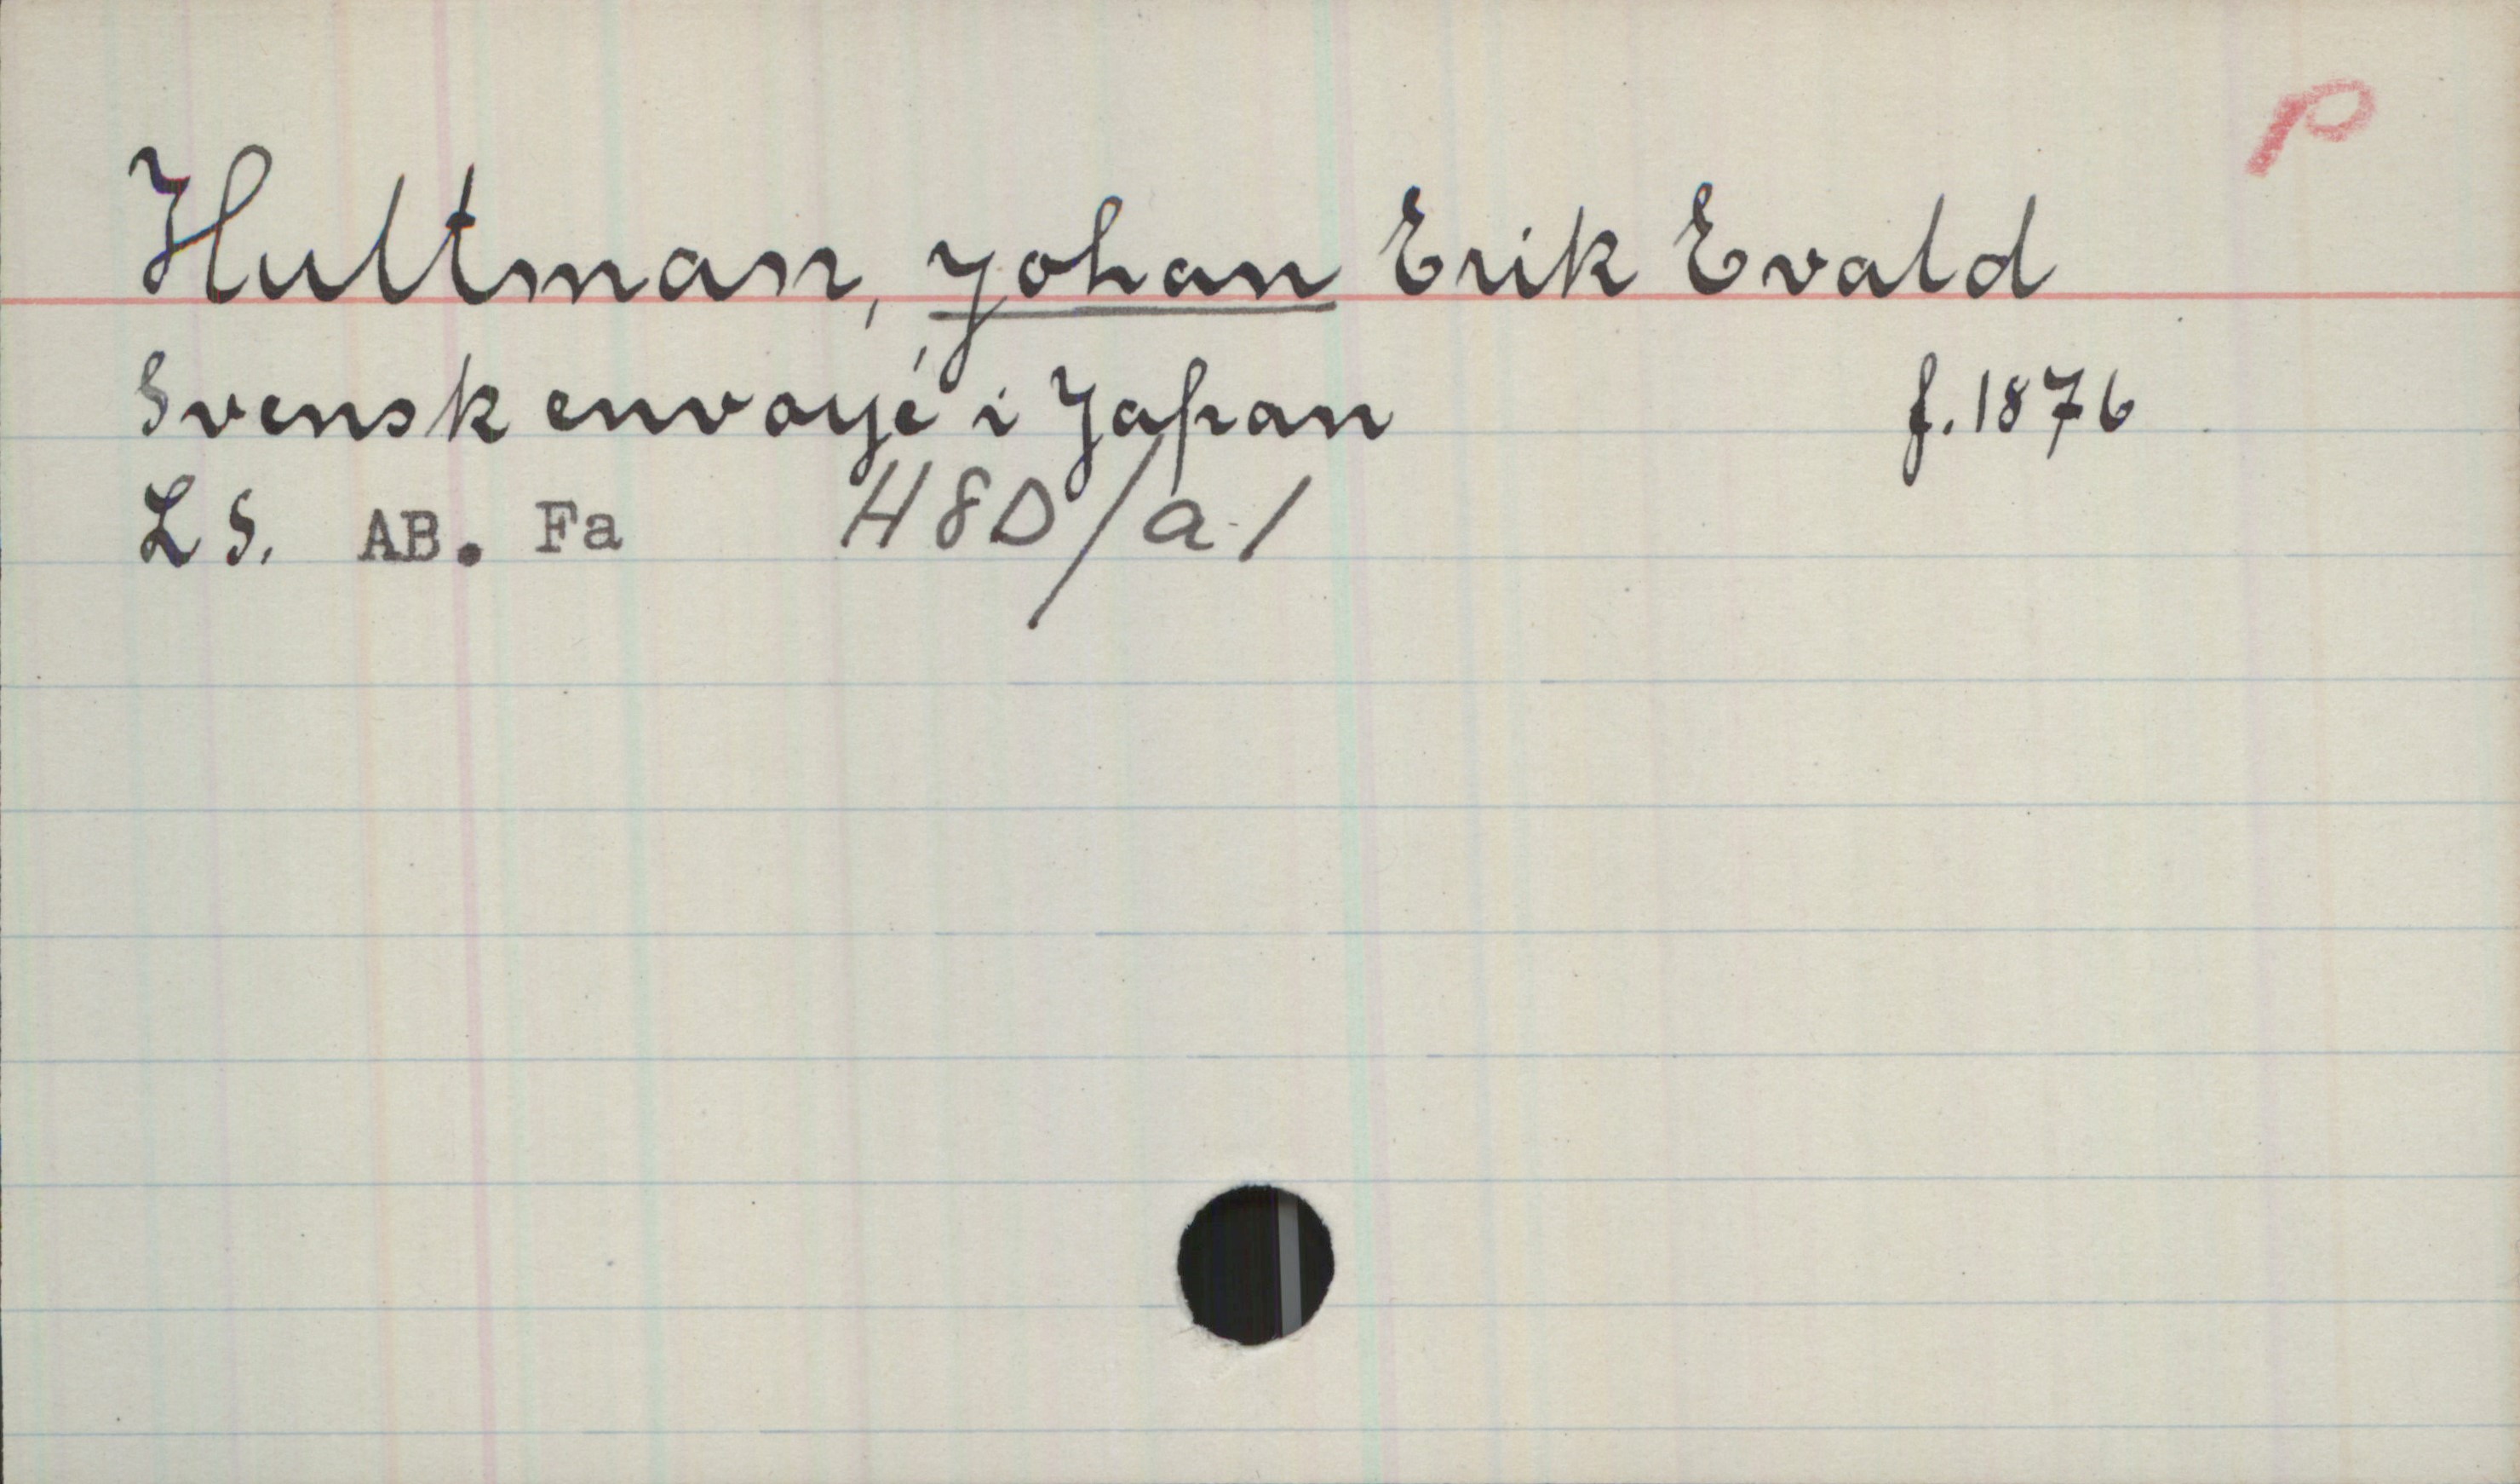 P
Hultman, Johan Erik Evald
Svensk envoyé i Japan f. 1876
LS. AB. Fa H8D/a-1